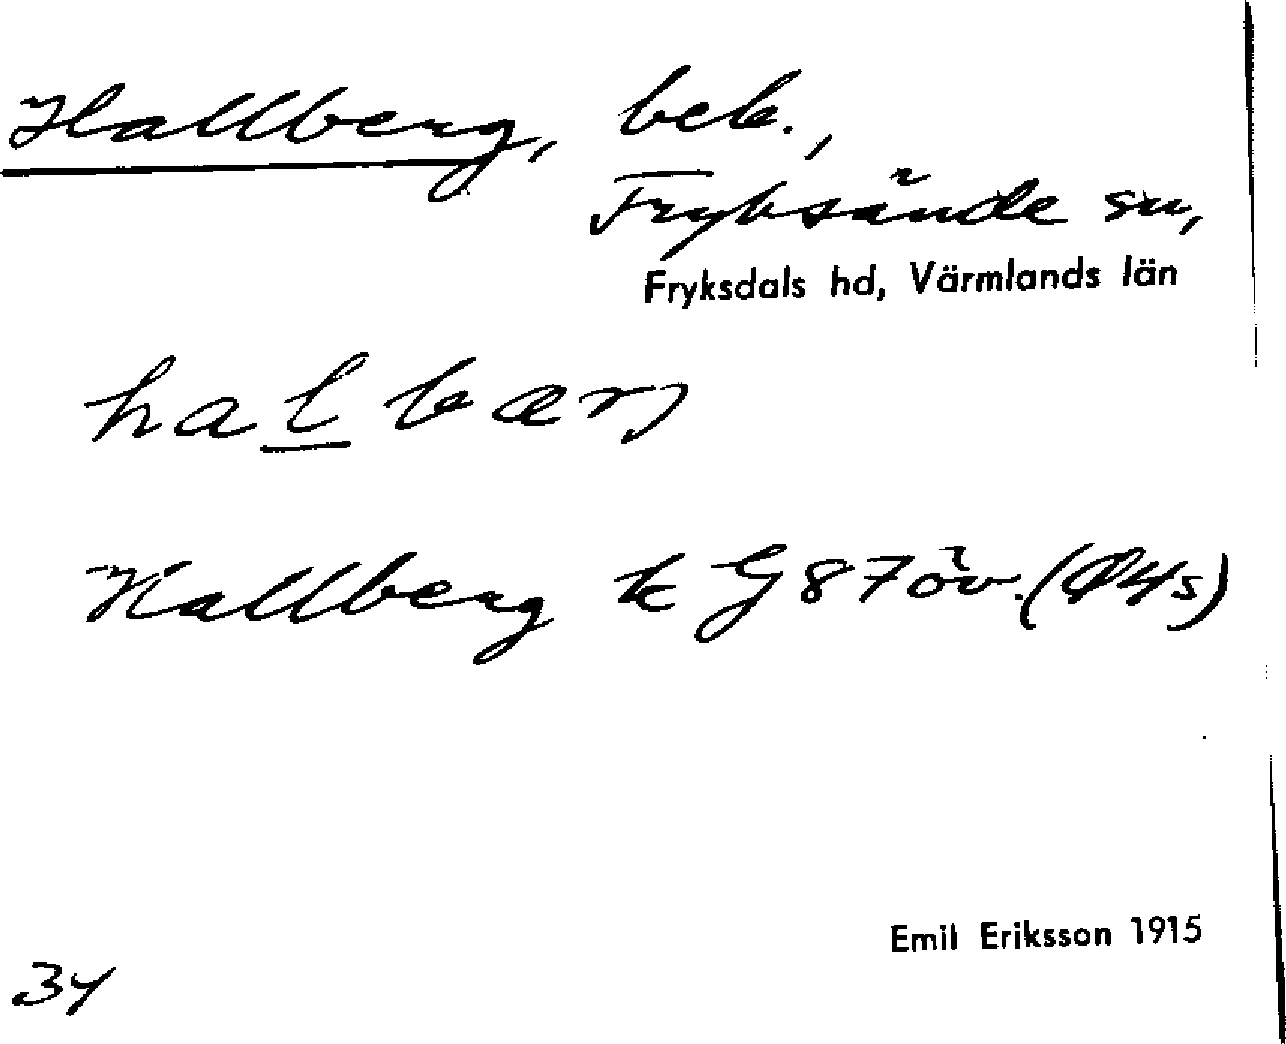 Hallberg, beb.,
Fryksände sn,
Fryksdals hd, Värmlands län
halbærj
Hallberg k G 87 öv.
Emil Eriksson 1915
34